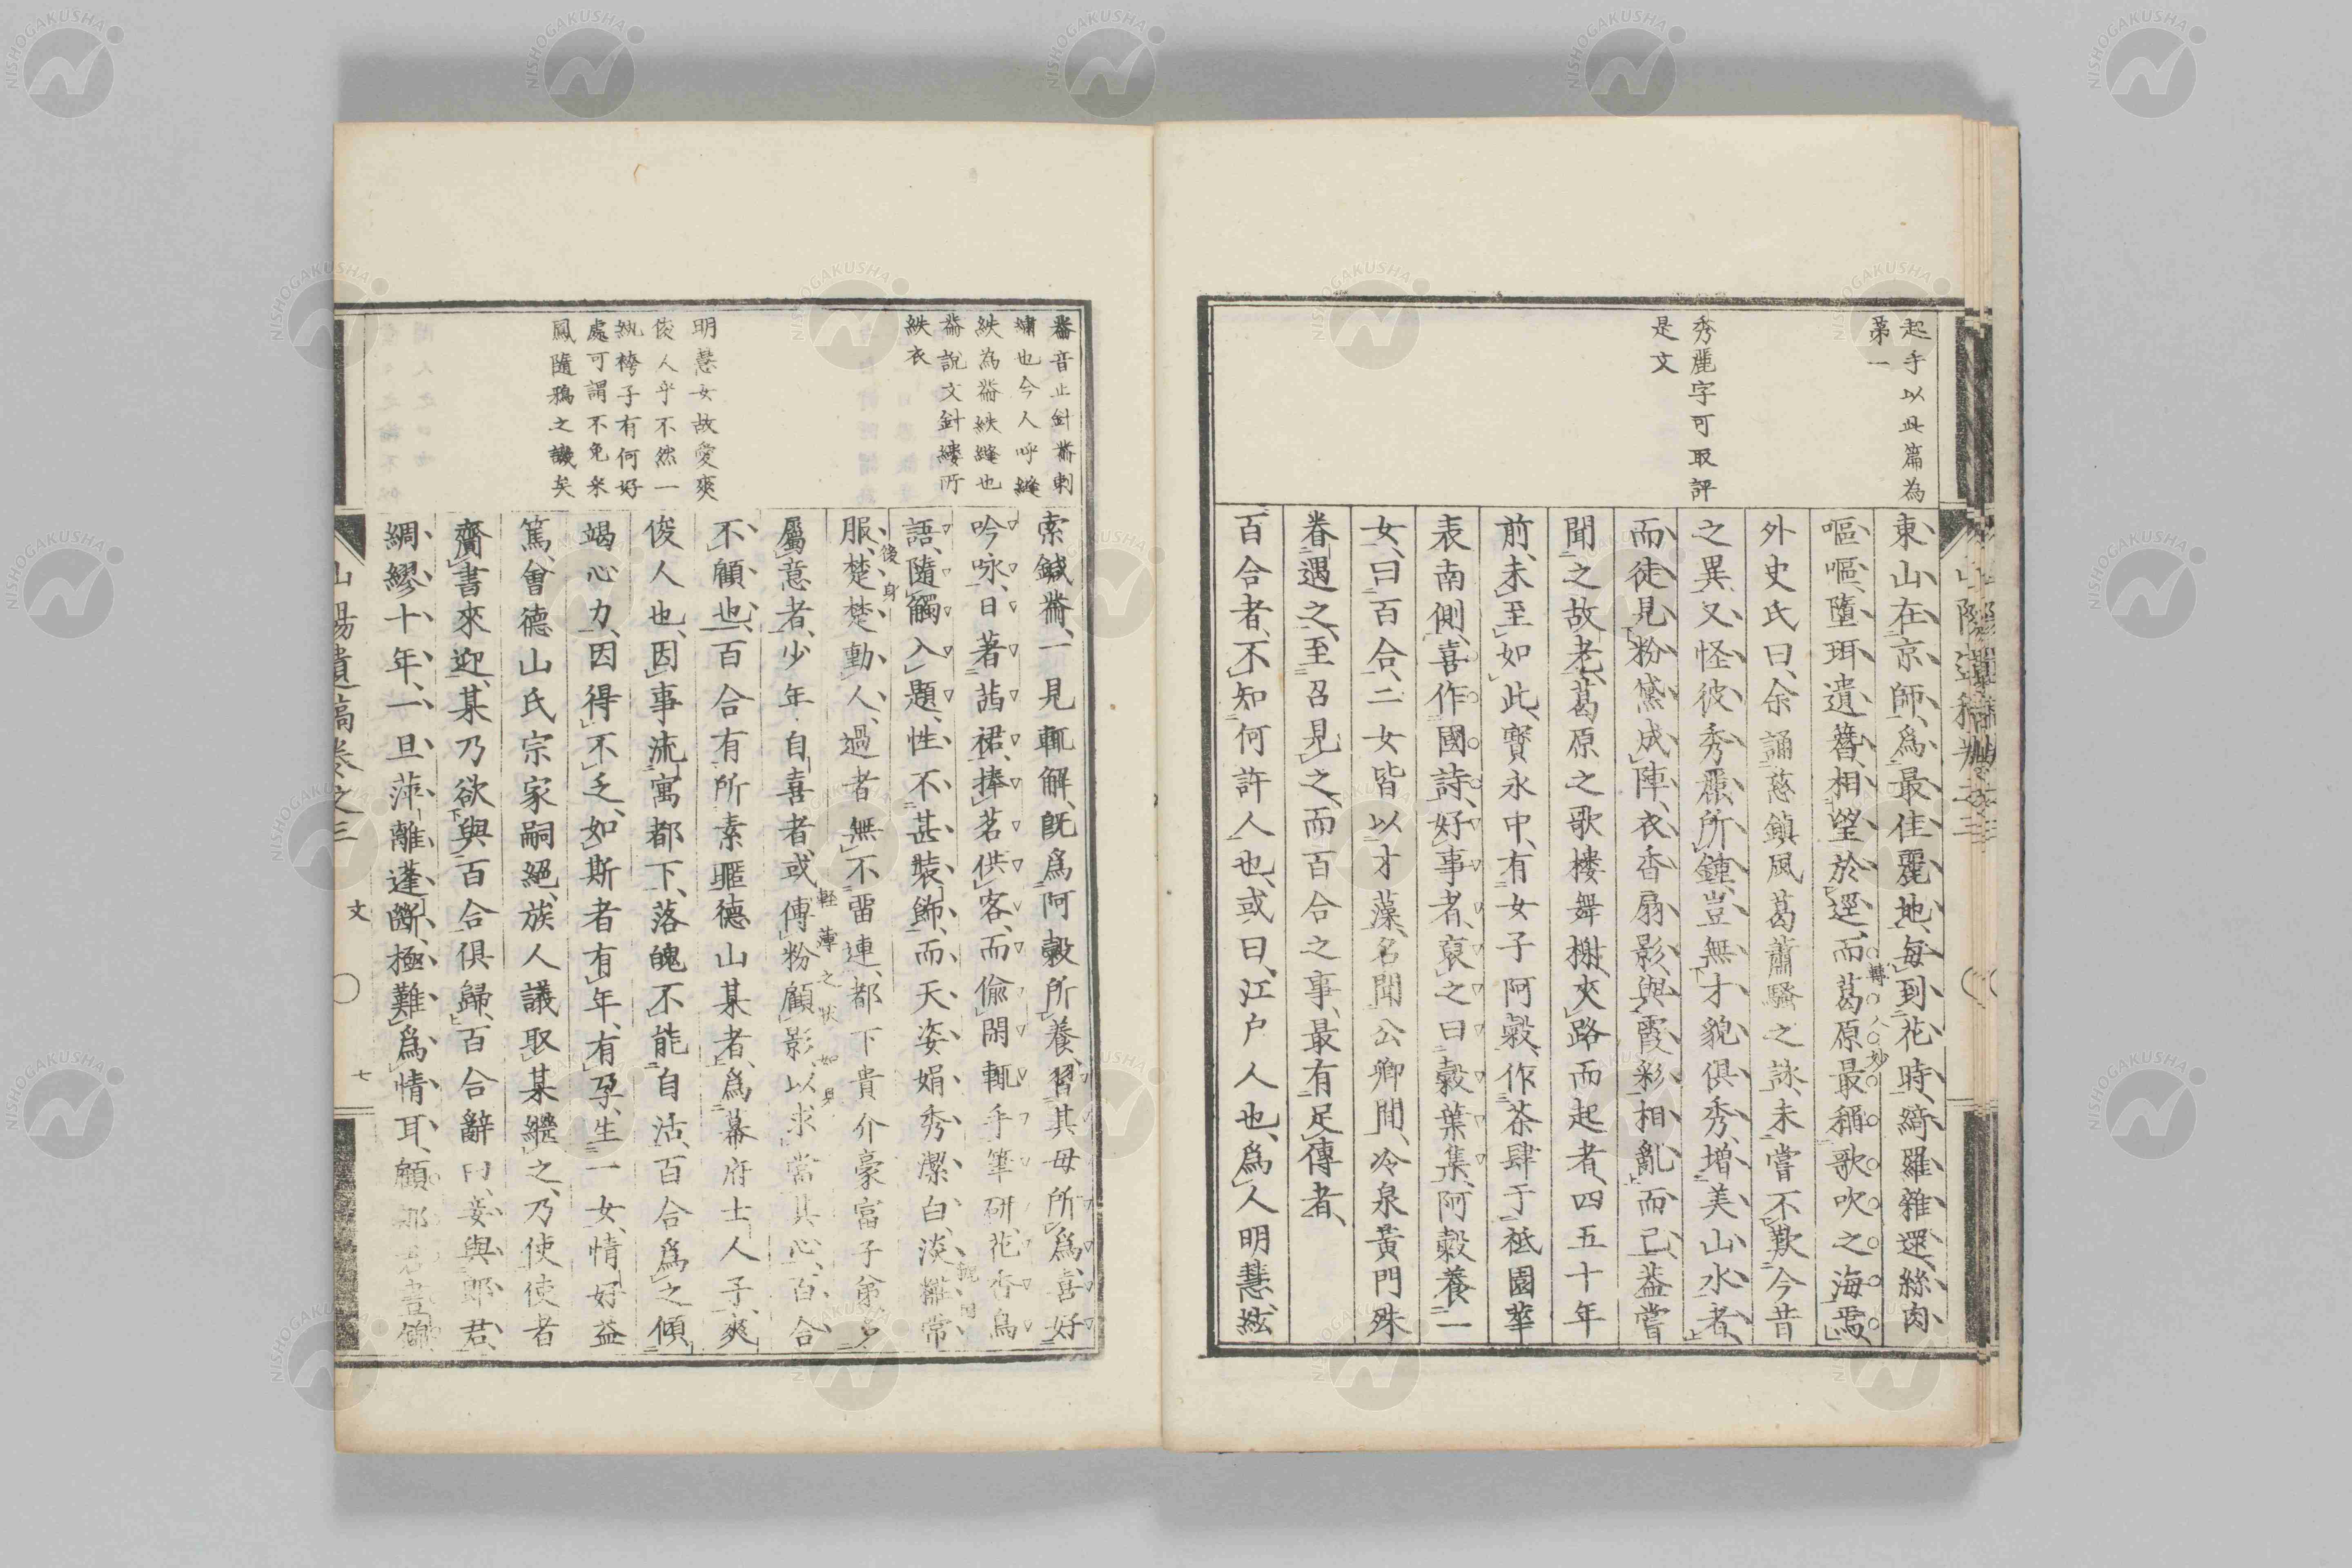 起手以此篇為
第一
秀麗字可取評
是文
東山在京師、爲最佳麗地、每到花時、綺羅雜遝、絲肉
嘔嘔、墮珥遺簪、相望於逕、而葛原最稱歌吹之海焉、
轉入妙
外史氏曰、余誦慈鎭風葛蕭騷之詠、未嘗不歎今昔
之異、又怪彼秀麗所鍾、豈無才貌俱秀、增美山水者、
而徒見粉黛成陣、衣香扇影、與霞彩相亂而已、蓋嘗
聞之故老、葛原之歌樓舞榭、夾路而起者、四五十年
前、未至如此、寶永中、有女子阿穀、作茶肆于祗園華
表南側、喜作國詩、好事者、裒之曰穀葉集、阿穀養一
女、曰百合、二女皆以才藻、名聞公卿間、冷泉黃門殊
眷遇之、至召見之、而百合之事、最有足傳者、
百合者、不知何許人也、或曰、江戶人也、爲人明慧、絃
黹音止針黹刺
繡也今人呼縫
紩為黹紩縫也
黹說文針縷所
紩衣
明慧女故愛爽
俊人乎不然一
紈袴子有何好
處可謂不免彩
鳳隨鴉之譏矣
索鍼黹、一見輒解、旣爲阿穀所養、習其母所爲、喜好
吟咏、日著茜裙、捧茗供客、而偸閑輒手筆研、花香鳥
語、隨觸入題、性不甚裝飾、而天姿娟秀潔白、淡粧常
服、楚楚動人、過者無不畱連、都下貴介豪富子弟多
後身
屬意者、少年自喜者、或傅粉顧影以求當其心、百合
輕薄之狀如見
不顧也、百合有所素暱德山某者、爲幕府士人子、爽
俊人也、因事流寓都下、落魄不能自活、百合爲之傾
竭心力、因得不乏、如斯者有年、有孕、生一女、情好益
篤、會德山氏宗家嗣絕、族人議取某繼之、乃使使者
齎書來迎、某乃欲與百合俱歸、百合辭曰、妾與郞君、
綢繆十年、一旦萍離蓬斷、極難爲情耳、顧郞君書錦
山陽遺稿卷之三
文
七